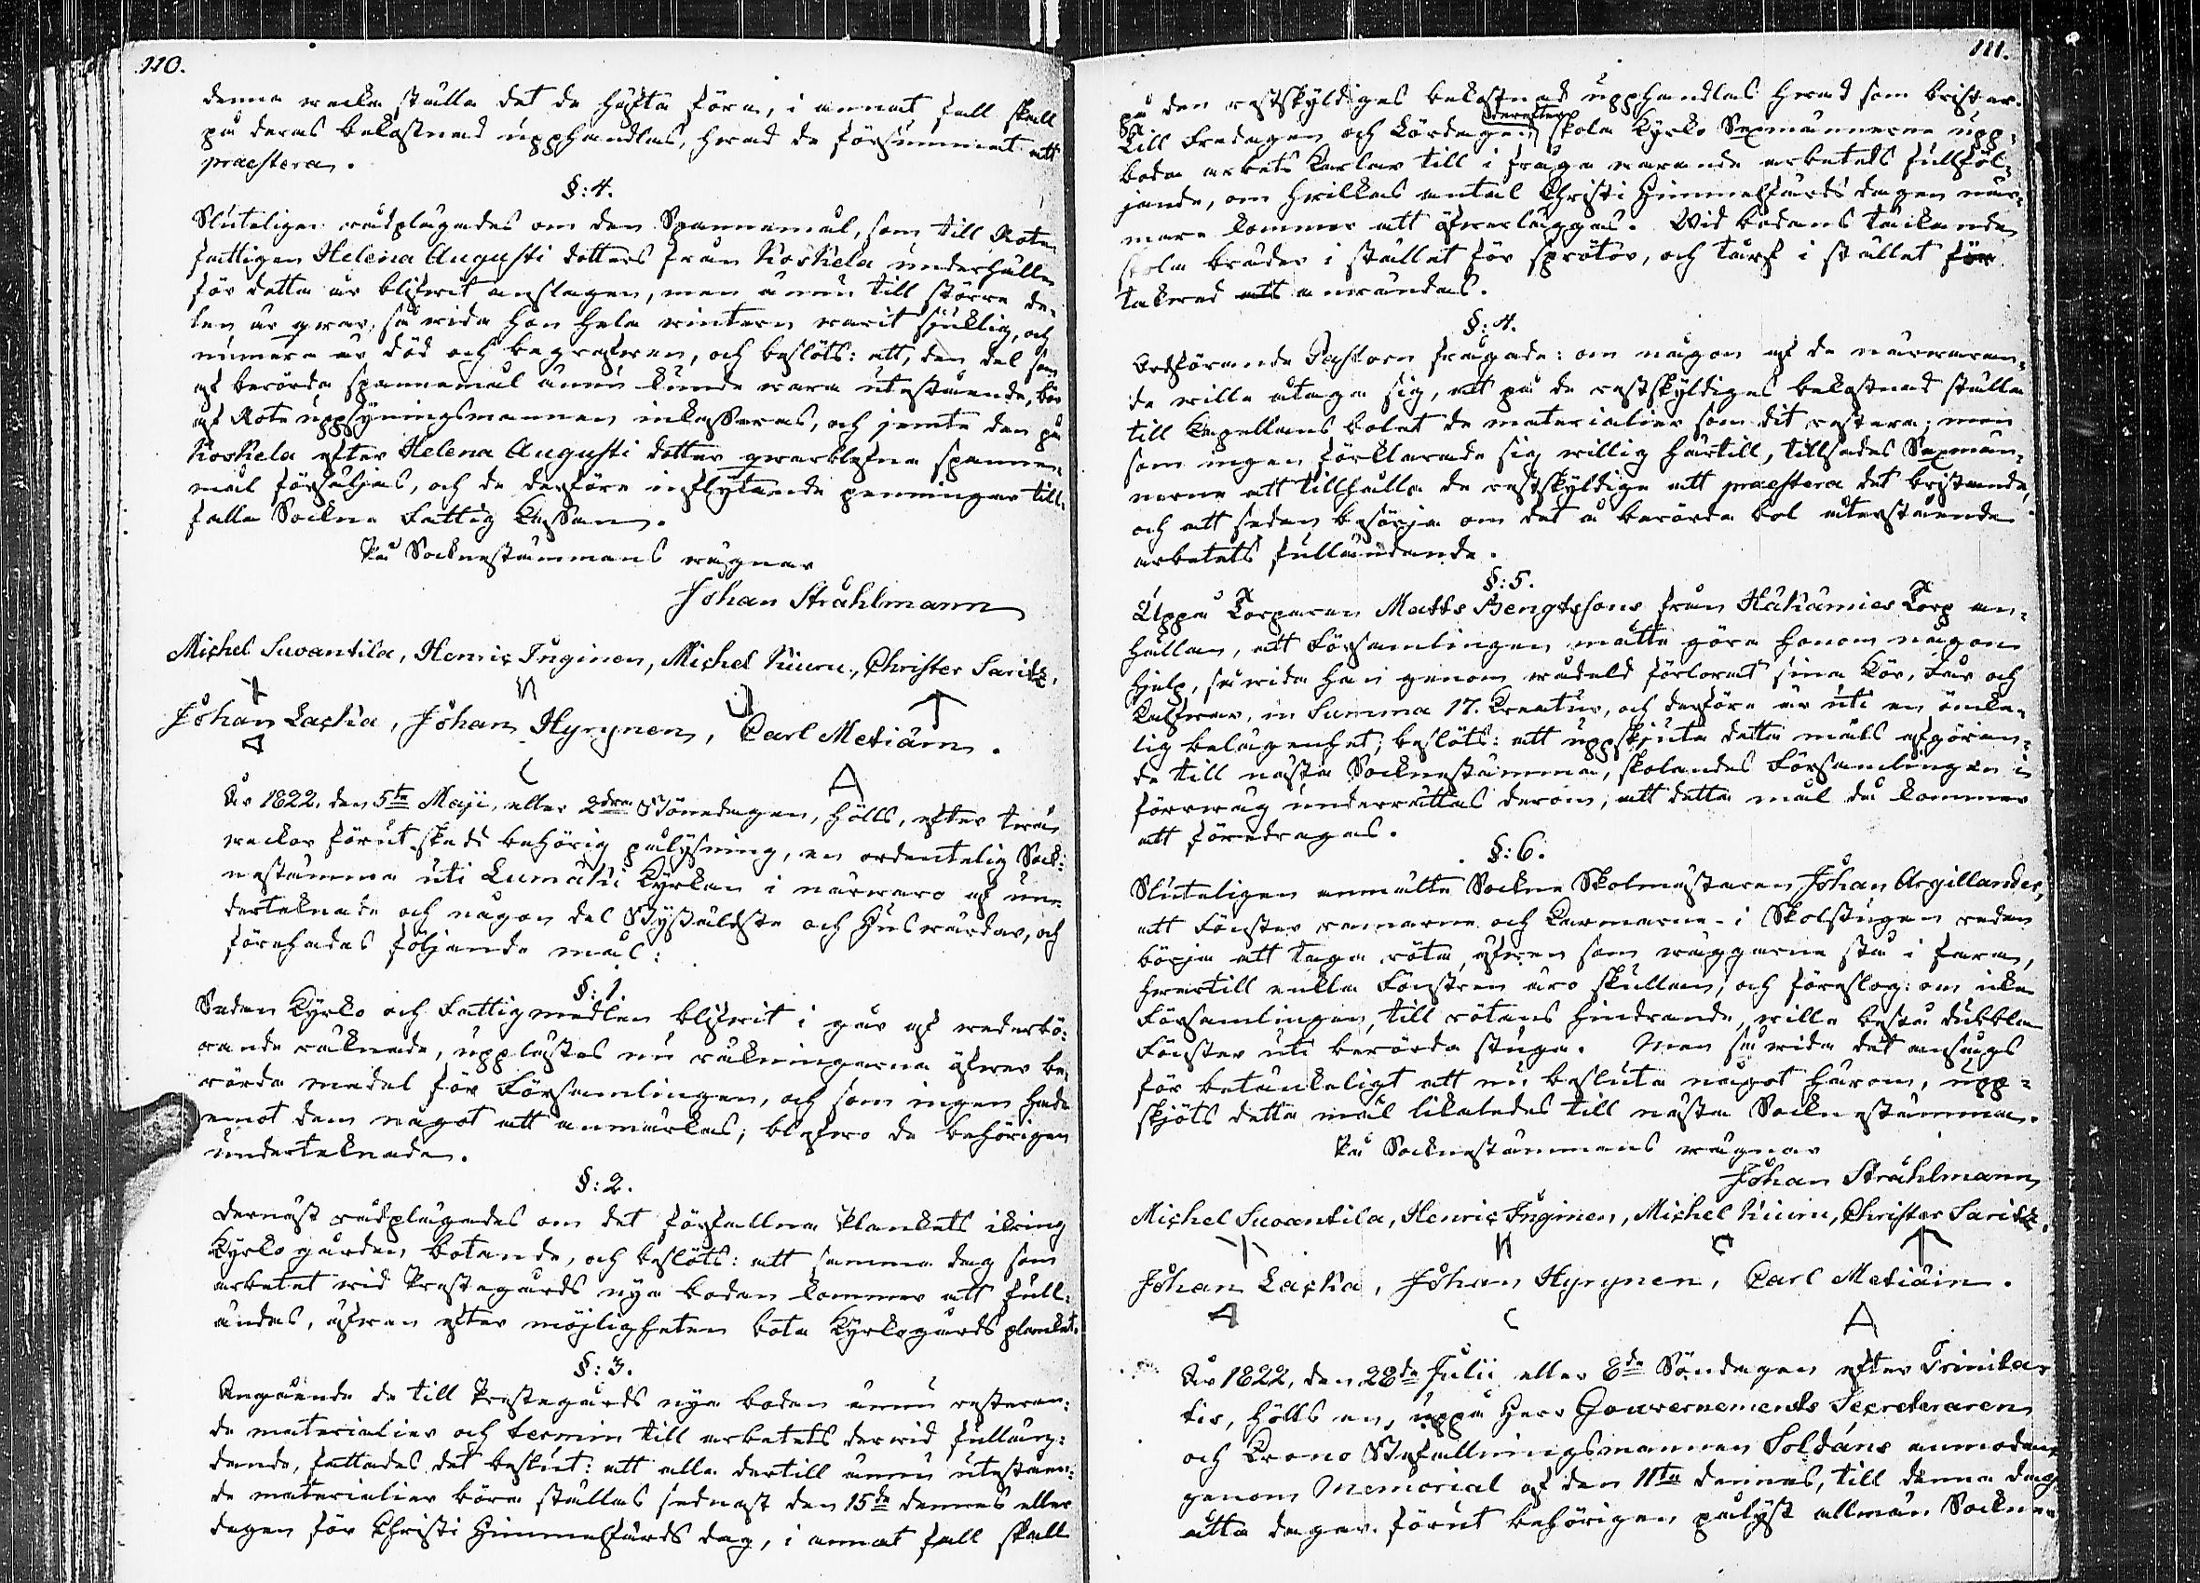 110.
denna wecka ställa det de häfta före, i annat fall skall
på deras bekostnad upphandlas, hwad de försummat att
præstera.
§: 4.
Sluteligen rådplägades om den Spannemål, som till Rote
fattigen Helena Augusti dotters från Koskela underhålle
för detta år blifwit anslagen, men ännu till större de-
len är qwar, så wida hon hela wintern warit sjuklig, och
numera är död och begrafwen, och beslöts: att, den del som
af berörda spannemål ännu kunde wara utestående, bör
af Rote uppsyningsmannen inkasseras, och jemte den på
Koskela efter Helena Augusti dotter qwarblefne spanne-
mål försäljas, och de derföre inflytande penningar till-
falla Sockne Fattig Cassan.
På Socknestämmans wägnar
Johan Stråhlmann
Michel Suvantila, Henric Inginen, Michel Kiuru, Christer Saritz,
Johan Lachia, Johan Hyrynen, Carl Metiäin.
År 1822, den 5te Maji, eller 2dra Bönedagen, hölls, efter twå
weckor förut skedd behörig pålysning, en ordentelig Sock-
nestämma uti Lumäki Kyrkan i närwaro af un-
dertecknade och någon del Byssäldste och Huswärdar, och
förehades följande mål:
§: 1.
Sedan Kyrko och Fattigmedlen blifwit i går af wederbö-
rande räknade, upplästes nu räkningarna öfwer be-
rörda medel för Församlingen, och som ingen hade
emot dem något att anmärkas; blefwo de behörigen
undertecknade.
§: 2.
Dernäst rådplägades om det förfallna Plankets ikring
Kyrkogården botande, och beslöts: att samma dag som
arbetet wid Prestegårds nya boden kommer att full-
ändas, äfwen efter möjligheten bota Kyrkogårds planket.
§: 3.
Angående de till Prestegårds nya boden ännu resteran-
de materialier och termin till arbetets derwid fullän-
dande, fattades det beslut: att alla dertill ännu uteståen-
de materialier böra ställas sednast den 15de dennes eller
dagen för Christi Himmelsfärds dag, i annat fall skall
111.
på den restskyldiges bekostnad upphandlas hwad som brister.
Till Fredagen och Lördagen derefter skola Kyrko Sexmännerne upp-
båda arbets Karlar till i fråga warande arbetets fullföl-
jande, om hwilkas antal Christi Himmelsfärds dagen när-
mare kommer att öfwerläggas. Wid bodans täckande
skola bräder i stället för sprötor, och tärf i stället för
takwed att anwändas.
§: 4.
Ordförande Pastorn frågade: om någon af de närwaran-
de wille åtaga sig, att på de restskyldiges bekostnad ställa
till Capellans bolet de materialier som dit restera; men
som ingen förklarade sig willig härtill, tillsades Sexmän-
nerne att tillhålla de restskyldige att præstera det bristande,
och att sedan besörja om det å berörda bol återstående
arbetets fulländande.
§: 5.
Uppå Torparen Matts Bengtssons från Häkämies Torp an-
hållan, att Församlingen måtte göra honom någon
hjelp, så wida han genom wådeld förlorat sina Kor, Får och
Kalfwar, in Summa 17. Kreatur, och derföre är uti en ömke-
lig belägenhet; beslöts: att uppskjuta detta måls afgöran-
de till nästa Socknestämma, skolandes Församlingen i
förwäg underrättas derom, att detta mål då kommer
att föredragas.
§: 6.
Sluteligen anmälte Sockne Skolmästaren Johan Argillander,
att Fönster ramarne och Karmarne i Skolstugan redan
börja att taga röta, äfwen som wäggarne stå i fara,
hwartill enkla Fönstren äro skulden, och föreslog: om icke
Församlingen, till rötans hindrande, wille bestå dubbla
Fönster uti berörda stuga. Men så wida det ansågs
för betänkeligt att nu besluta något härom, upp-
skjöts detta mål likaledes till nästa Socknestämma.
På Socknestämmans wägnar
Johan Stråhlmann
Michel Suvantila, Henric Inginen, Michel Kiuru, Christer Saritz,
Johan Lachia, Johan Hyrynen, Carl Metiäin.
År 1822, den 28de Julii eller 8de Söndagen efter Trinita-
tis, hölls en, uppå Herr Gouvernements Secreteraren
och Crono Befallningsmannen Soldáns anmodan
genom Memorial af den 11te dennes, till denna dag
åtta dagar förut behörigen pålyst allmän Sockne-